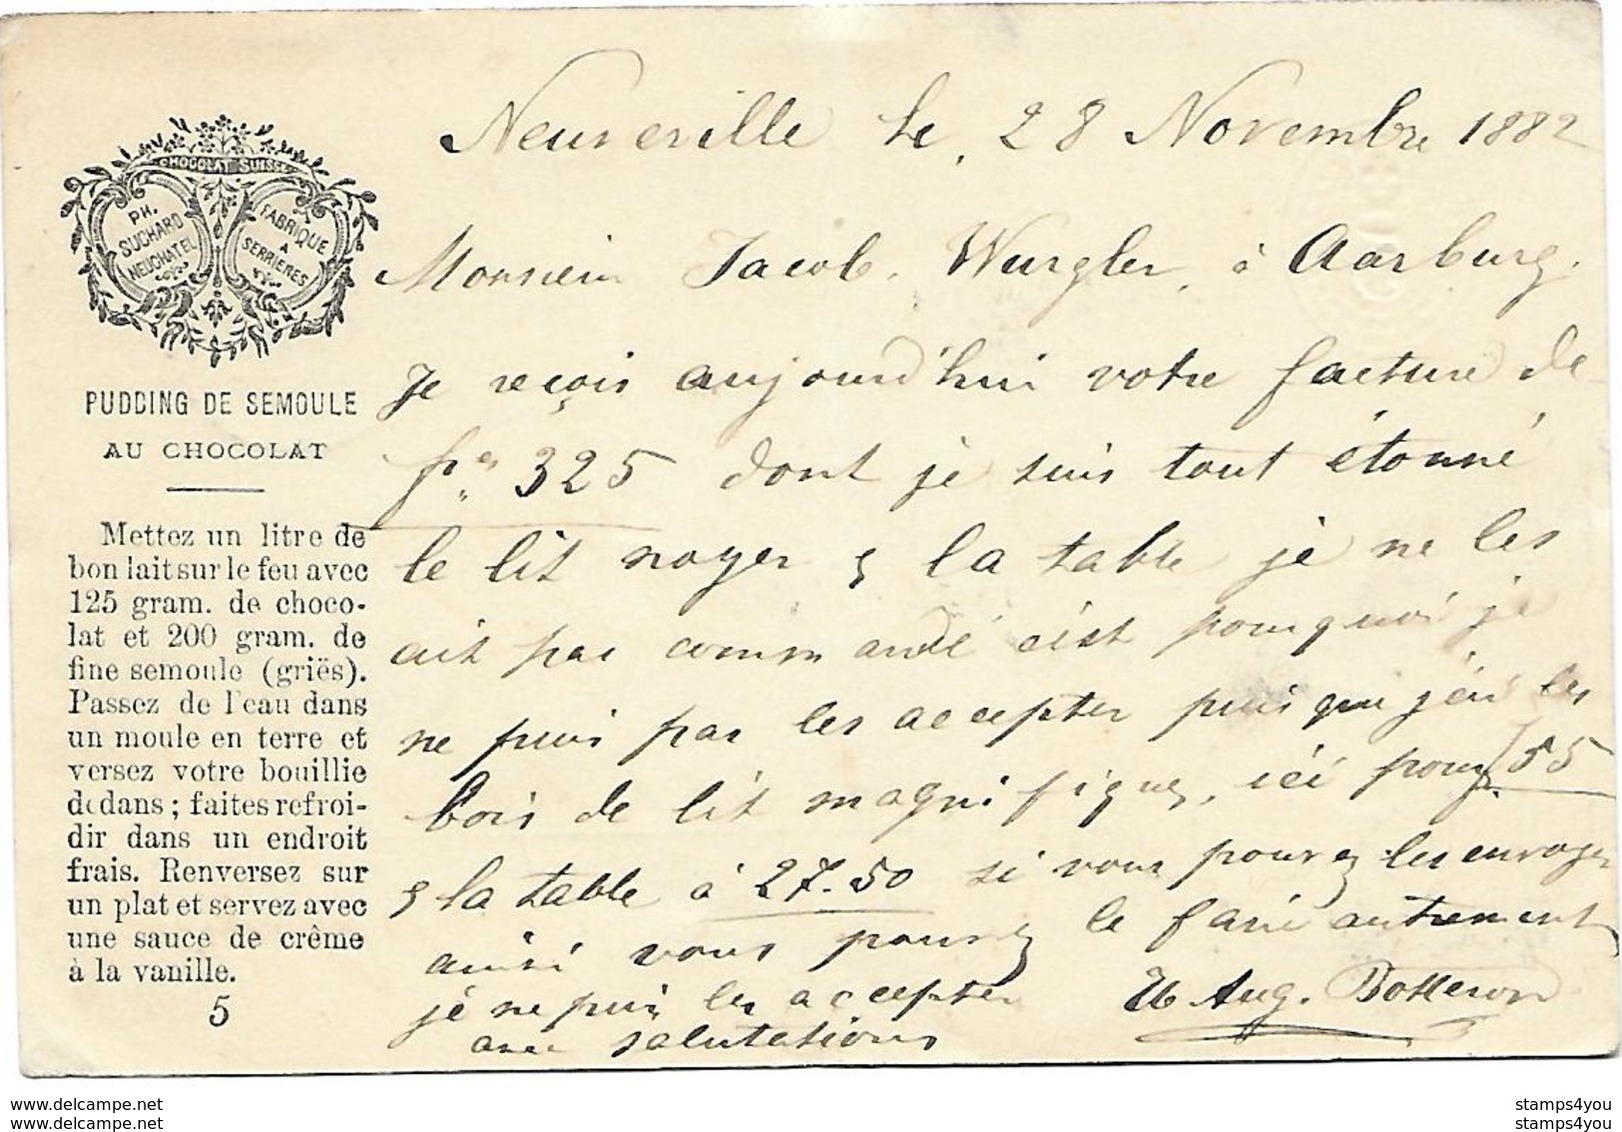 CHOCOLAT SUISSE
PH.
SUCHARD
NEUCHATEL
FABRIQUE
A
SERRIÈRES
PUDDING DE SEMOULE
AU CHOCOLAT
Mettez un litre de
bon lait sur le feu avec
125 gram. de choco-
lat et 200 gram. de
fine semoule (griës).
Passez de l'eau dans
un moule en terre et
versez votre bouillie
dedans ; faites refroi-
dir dans un endroit
frais. Renversez sur
un plat et servez avec
une sauce de crême
à la vanille.
5
Neuveville le, 28 Novembre 1882
Monsieur Jacob. Wurgler, à Aarburg.
Je reçois aujourd'hui votre facture de
frs 325 dont je suis tout étonné
le lit noyer & la table je ne les
ait pas commandé c'est pourquoi je
ne puis pas les accepter puisque j'ai les
bois de lit magnifique, ici pour f. 55
& la table à 27.50 si vous pouvez les envoyer
ainsi vous pouvez le faire autrement
je ne puis les accepter
avec salutations
Aug. Botteron
www.delcampe.net
www.delcampe.net
stamps4you
stamps4you